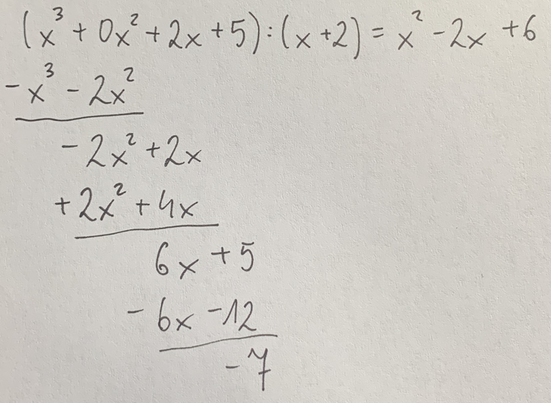 (x³ + 0x² + 2x + 5) : (x + 2) = x² - 2x + 6
- x³ - 2x²
- 2x² + 2x
+ 2x² + 4x
6x + 5
- 6x - 12
- 7